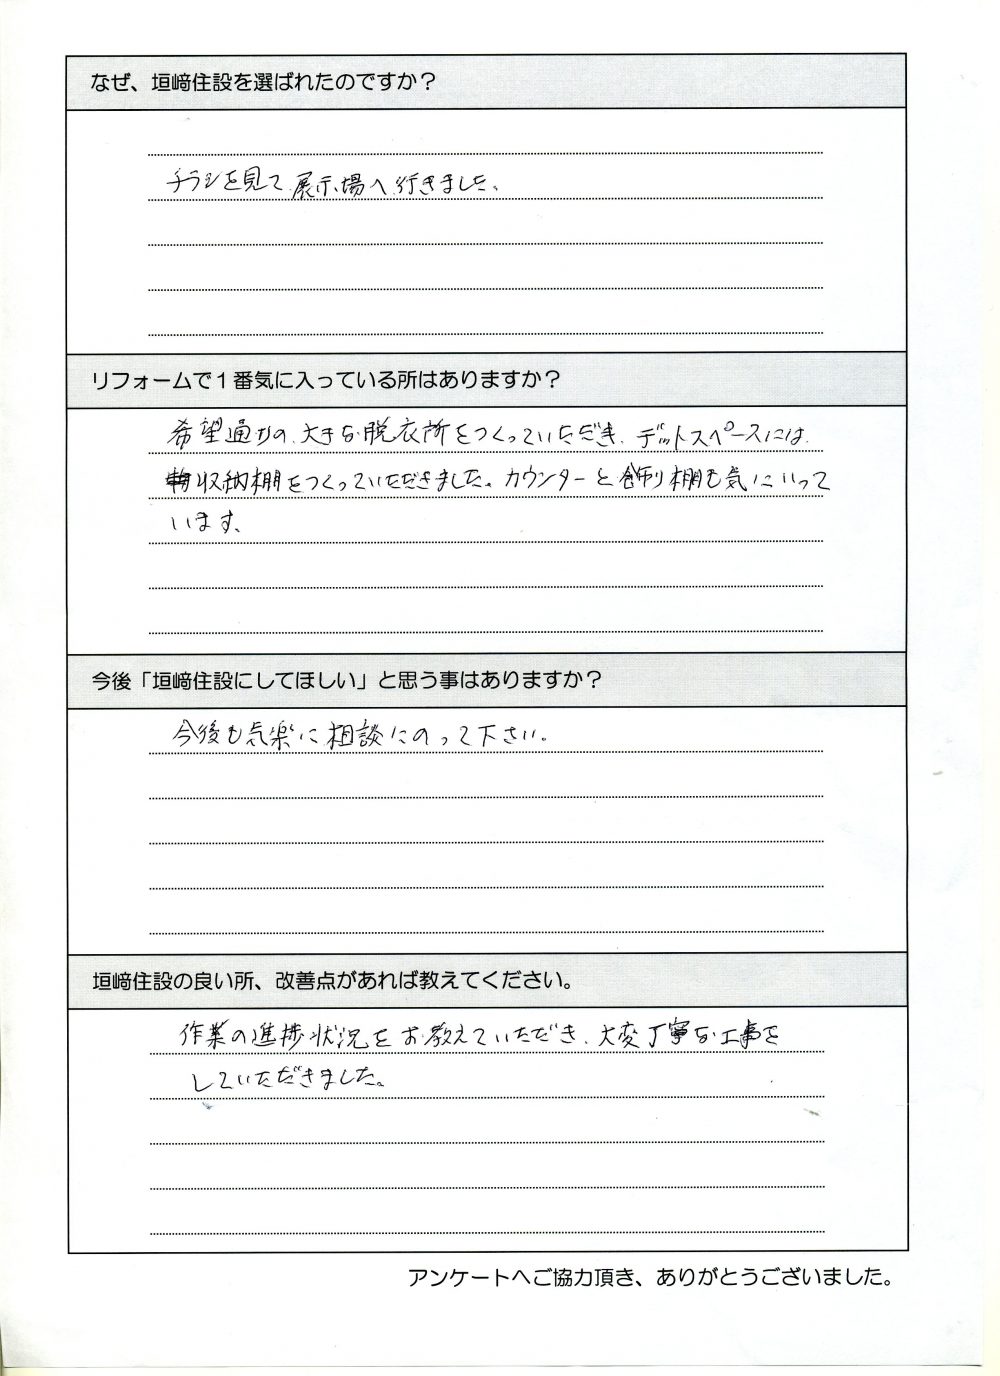 なぜ、垣﨑住設を選ばれたのですか？
チラシを見て、展示場へ行きました。
リフォームで１番気に入っている所はありますか？
希望通りの、大きな脱衣所をつくっていただき、デットスペースには、
収納棚をつくっていただきました。カウンターと飾り棚も気にいって
います。
今後「垣﨑住設にしてほしい」と思う事はありますか？
今後も気楽に相談にのって下さい。
垣﨑住設の良い所、改善点があれば教えてください。
作業の進捗状況をお教えていただき、大変丁寧な工事を
していただきました。
アンケートへご協力頂き、ありがとうございました。